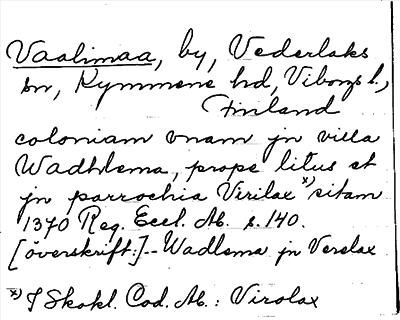 Vaalimaa, by, Vederlaks
sn, Kymmene hd, Viborgs l.,
Finland
coloniam vnam jn villa
Wadhlema, prope litus et
jn parrochia Virilax x) sitam
1370 Reg. Eccl. Ab. s. 140.
[överskrift:]-- Wadlema jn Verelax
x) I Skokl. Cod. Ab.: Virolax